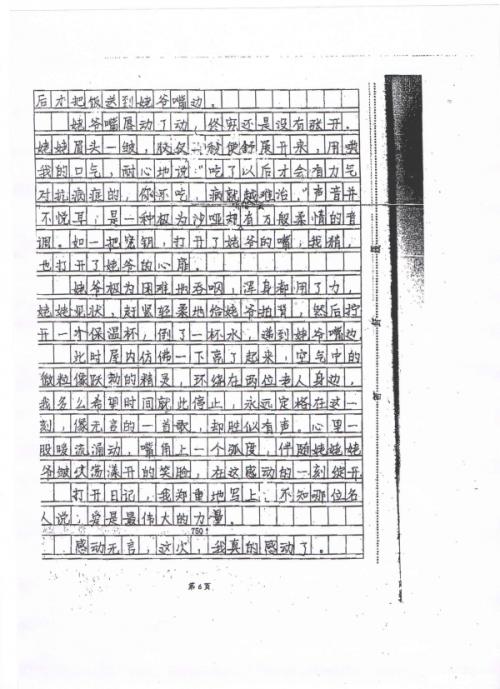 后才把饭送到姥爷嘴边。
姥爷嘴唇动了动，终究还是没有张开。
姥姥眉头一皱，仅仅一秒便舒展开来，用喂
我的口气，耐心地说："吃了以后才会有力气
对抗病症的，你不吃，病就越难治。"声音并
不悦耳，是一种极为沙哑却有万般柔情的音
调。如一把密钥，打开了姥爷的嘴，我稍，
也打开了姥爷的心扉。
姥爷极为困难地吞咽，浑身都用了力，
姥姥见状，赶紧轻柔地给姥爷拍背，然后拧
开一个保温杯，倒了一杯水，递到姥爷嘴边
此时屋内仿佛一下高了起来，空气中的
微粒像跃动的精灵，环绕在两位老人身边，
我多么希望时间就此停止，永远定格在这一
刻，像无言的一首歌，却胜似有声。心里一
股暖流涌动，嘴角上一个弧度，伴随姥姥姥
爷皱纹荡漾开的笑脸，在这感动的一刻绽开
打开日记，我郑重地写上：不知哪位名
人说：爱是最伟大的力量。
750!
感动无言，这次，我真的感动了。
第6页